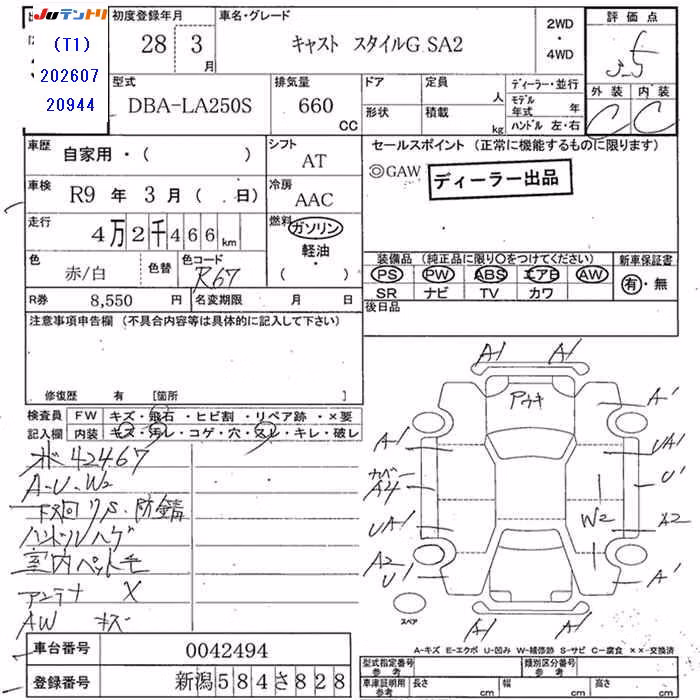 Juテントリ
(T1)
202607
20944
初度登録年月
28 3
月
車名・グレード
キャスト スタイルG SA2
2WD
・
4WD
評価点
3.5
外装 内装
C C
型式
DBA-LA250S
排気量
660
CC
ドア
形状
定員
人
積載
kg
ディーラー・並行
モデル
年式 年
ハンドル 左・右
車歴
自家用・( )
シフト
AT
車検
R9 年 3 月 ( 日)
冷房
AAC
走行
4万2千466km
燃料
ガソリン
軽油
( )
色
赤/白
色替
色コード
R67
R券 8,550 円
名変期限 月 日
セールスポイント (正常に機能するものに限ります)
◎GAW
ディーラー出品
装備品 (純正品に限り○をつけてください)
PS PW ABS エアB AW
SR ナビ TV カワ
新車保証書
有・無
後日品
注意事項申告欄 (不具合内容等は具体的に記入して下さい)
修復歴 有 [箇所 ]
検査員
記入欄
FW キズ・飛石・ヒビ割・リペア跡・×要
内装 キズ・汚レ・コゲ・穴・スレ・キレ・破レ
42467
A-U-W2
下回りS・防錆
ハンドルハゲ
室内ペットモ
アンテナ X
AW キズ
A1 A1
アウキ
A1 A1
カバー
A4
UA1
U1
UA1 W2 A2
A2
U1
A1
A1 A1
スペア
A-キズ E-エクボ U-凹み W-補修跡 S-サビ C-腐食 ××-交換済
車台番号 0042494
登録番号 新潟584さ828
型式指定番号
参考
類別区分番号
参考
車庫証明用
参考
長さ cm
幅 cm
高さ cm